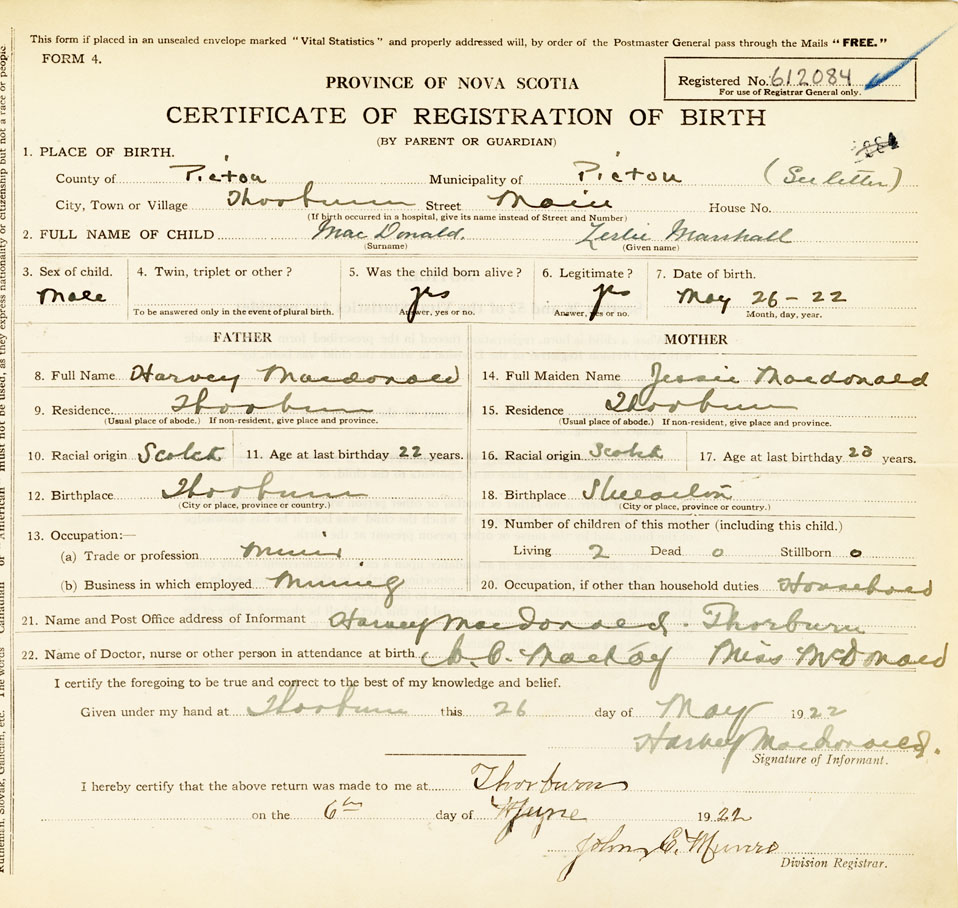 This form if placed in an unsealed envelope marked "Vital Statistics" and properly addressed will, by order of the Postmaster General pass through the Mails "FREE."
FORM 4.
Registered No. 612084
For use of Registrar General only.
PROVINCE OF NOVA SCOTIA
CERTIFICATE OF REGISTRATION OF BIRTH
(BY PARENT OR GUARDIAN)
1. PLACE OF BIRTH.
County of Pictou Municipality of Pictou (See letter)
City, Town or Village Thorburn Street Main House No.
(If birth occurred in a hospital, give its name instead of Street and Number)
2. FULL NAME OF CHILD MacDonald. Leslie Marshall
(Surname) (Given name)
3. Sex of child. 4. Twin, triplet or other? 5. Was the child born alive? 6. Legitimate? 7. Date of birth.
Male yes yes May 26-22
To be answered only in the event of plural birth. Answer, yes or no. Answer, yes or no. Month, day, year.
FATHER MOTHER
8. Full Name Harvey Macdonald 14. Full Maiden Name Jessie Macdonald
9. Residence. Thorburn 15. Residence Thorburn
(Usual place of abode.) If non-resident, give place and province. (Usual place of abode.) If non-resident, give place and province.
10. Racial origin Scotch 11. Age at last birthday 22 years. 16. Racial origin Scotch 17. Age at last birthday 23 years.
12. Birthplace Thorburn 18. Birthplace
(City or place, province or country.) (City or place, province or country.)
13. Occupation:— 19. Number of children of this mother (including this child.)
(a) Trade or profession Miner Living 2 Dead 0 Stillborn 0
(b) Business in which employed Mining 20. Occupation, if other than household duties Household
21. Name and Post Office address of Informant Harvey Macdonald. Thorburn
22. Name of Doctor, nurse or other person in attendance at birth MacKay Miss McDonald
I certify the foregoing to be true and correct to the best of my knowledge and belief.
Given under my hand at Thorburn this 26 day of May 1922
Harvey Macdonald.
Signature of Informant.
I hereby certify that the above return was made to me at Thorburn
on the 6th day of June 1922
John C. Munro
Division Registrar.